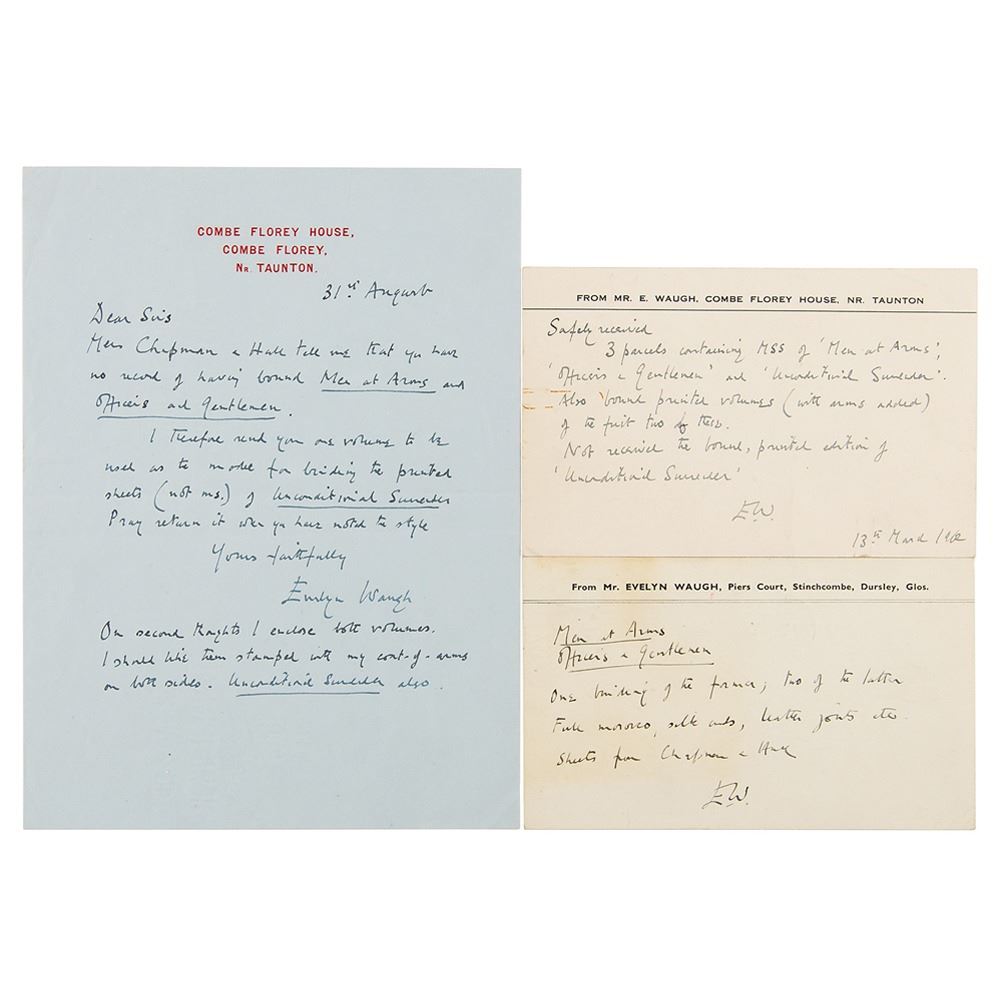 COMBE FLOREY HOUSE,
COMBE FLOREY,
NR. TAUNTON.
31st August
Dear Sirs
Messrs Chapman & Hall tell me that you have
no record of having bound Men at Arms and
Officers and Gentlemen.
I therefore send you one volume to be
used as the model for binding the printed
sheets (not ms.) of Unconditional Surrender
Pray return it when you have noted the style
Yours faithfully
Evelyn Waugh
On second thoughts I enclose both volumes.
I should like them stamped with my coat-of-arms
on both sides. Unconditional Surrender also.
FROM MR. E. WAUGH, COMBE FLOREY HOUSE, NR. TAUNTON
Safely received
3 parcels containing MSS of 'Men at Arms',
'Officers & Gentlemen' and 'Unconditional Surrender'.
Also bound printed volumes (with arms added)
of the first two of these.
Not received the bound, printed edition of
'Unconditional Surrender'
E.W.
13th March 1962
From Mr. EVELYN WAUGH, Piers Court, Stinchcombe, Dursley, Glos.
Men at Arms
Officers & Gentlemen
One binding of the former; two of the latter
Full morocco, silk ends, leather joints etc.
Sheets from Chapman & Hall
E.W.